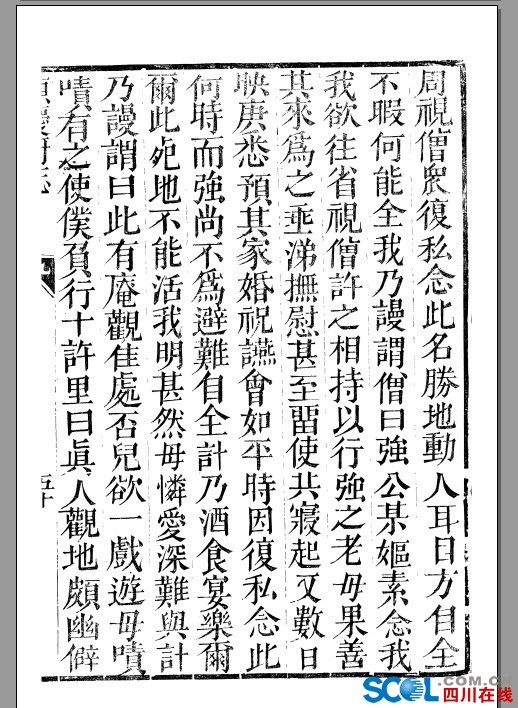 周視僧衆復私念此名勝地動人耳目方自全
不暇何能全我乃謾謂僧曰強公某嫗素念我
我欲往省視僧許之相持以行強之老母果善
其來爲之垂涕撫慰甚至畱使共寢起又數日
映庚悉預其家婚祝讌會如平時因復私念此
何時而強尚不爲避難自全計乃酒食宴樂爾
爾此死地不能活我明甚然母憐愛深難與計
乃謾謂曰此有庵觀佳處否兒欲一戲遊母嘖
嘖有之使僕負行十許里曰眞人觀地頗幽僻
五十
SCOL.COM.CN
四川在线